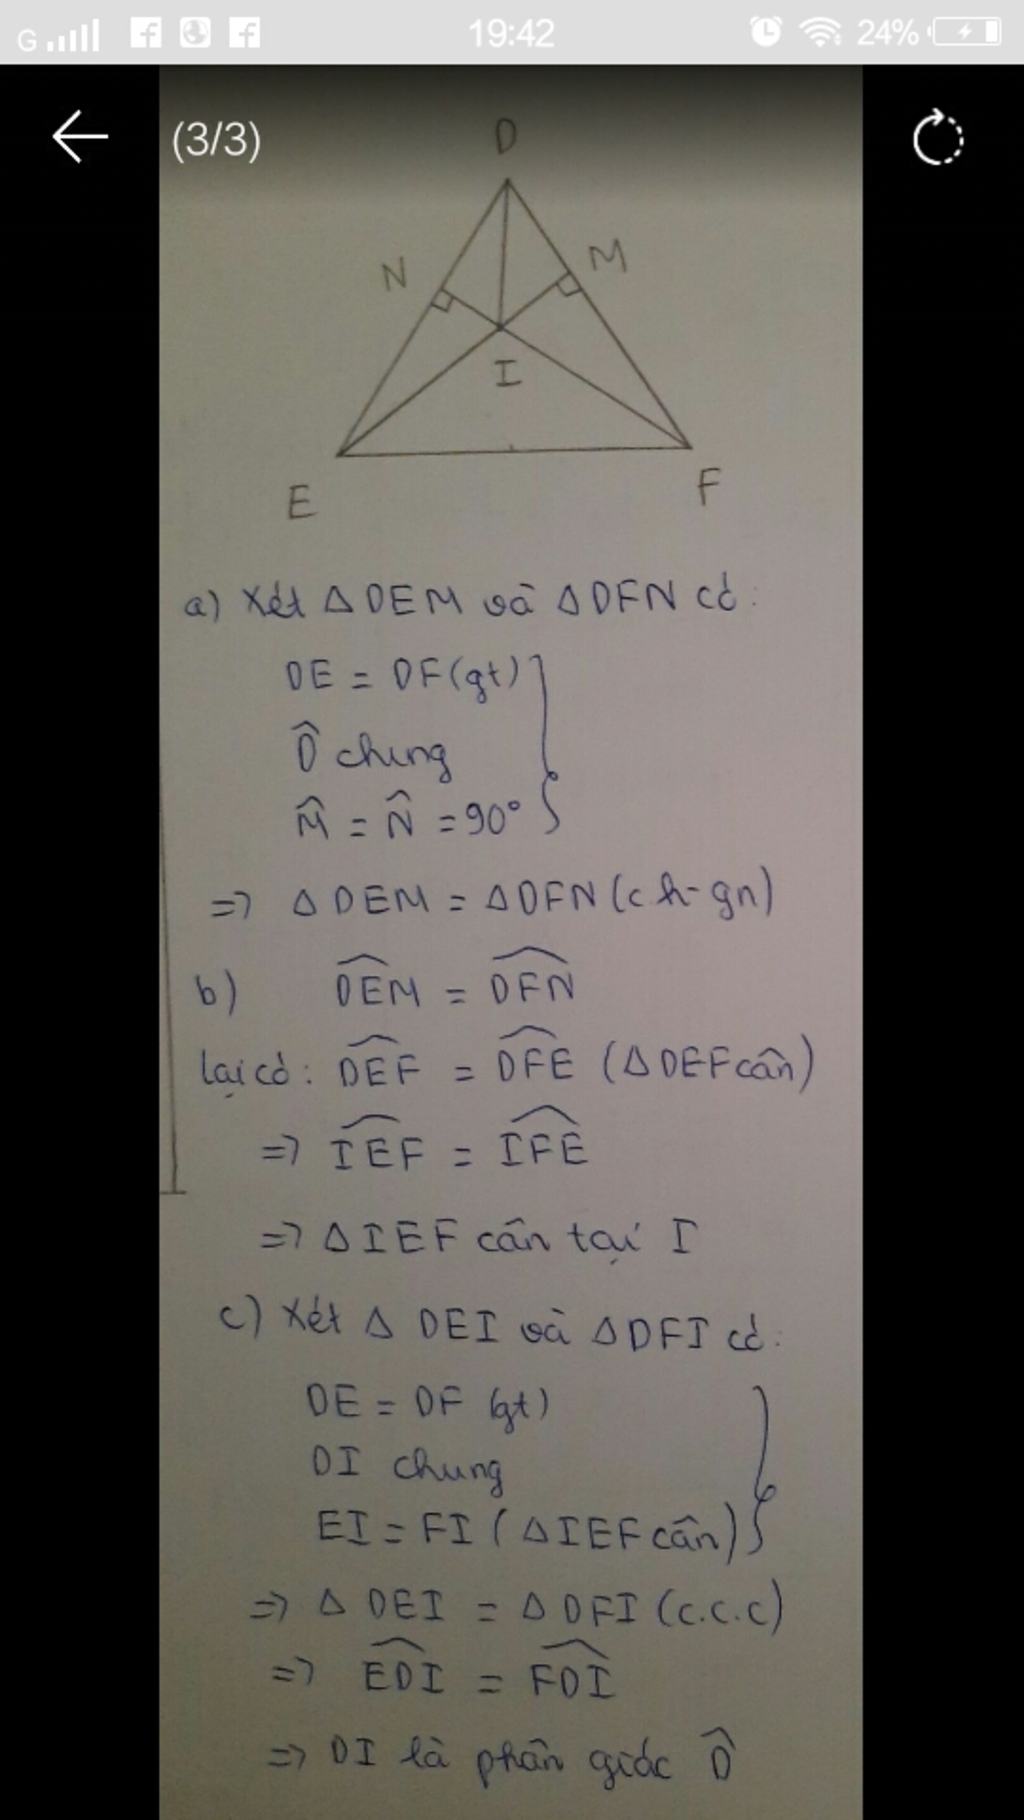 G 19:42 24%
(3/3)
D
N M
I
E F
a) Xét Δ DEM và Δ DFN có:
DE = DF (gt)
D̂ chung
M̂ = N̂ = 90°
=> Δ DEM = Δ DFN (c.h-gn)
b) D͡EM = D͡FN
lại có: D͡EF = D͡FE (Δ DEF cân)
=> I͡EF = I͡FE
=> Δ IEF cân tại I
c) Xét Δ DEI và Δ DFI có:
DE = DF (gt)
DI chung
EI = FI (Δ IEF cân)
=> Δ DEI = Δ DFI (c.c.c)
=> E͡DI = F͡DI
=> DI là phân giác D̂